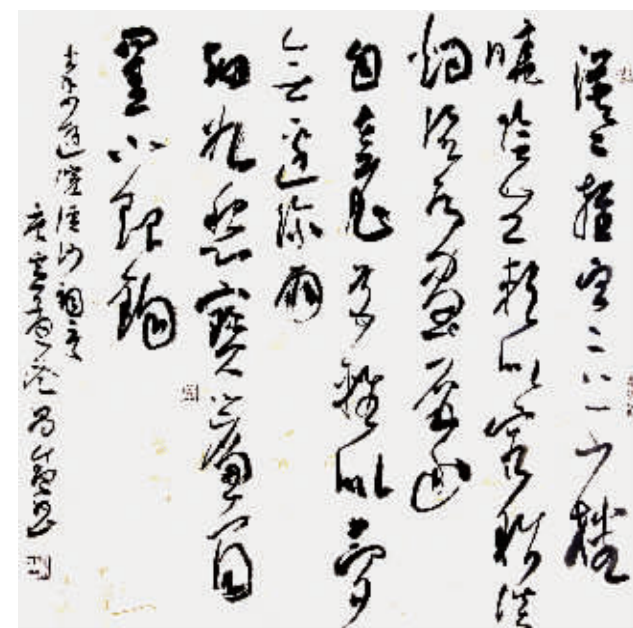 漠漠輕寒上小樓
曉陰無賴似窮秋淡
烟流水畫屏幽
自在飛花輕似夢
無邊絲雨
細如愁寶簾閒
掛小銀鉤
秦少游浣溪沙詞